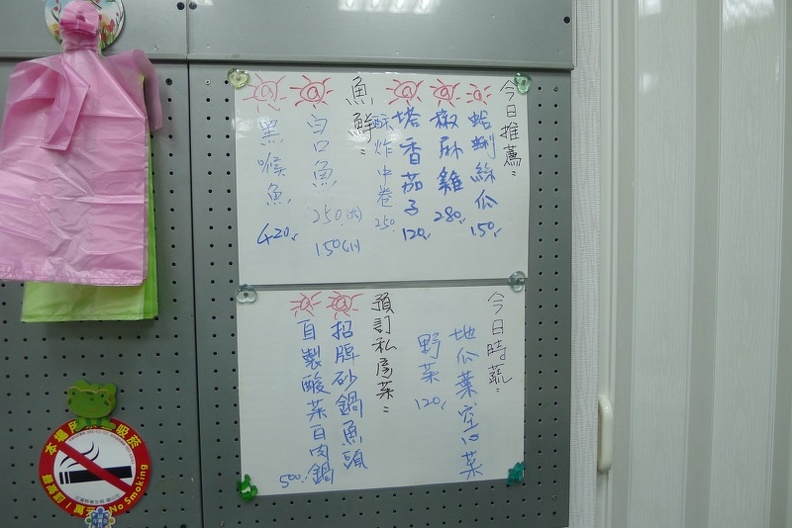 今日推薦:
蛤蜊絲瓜 150.
椒麻雞 280.
塔香茄子 120.
酥炸中卷 250
魚鮮:
白口魚 250(大) 150(小)
黑喉魚 420.
今日時蔬:
地瓜葉 空心菜
野菜 120.
預訂私房菜:
招牌砂鍋魚頭
自製酸菜白肉鍋 500.
No Smoking